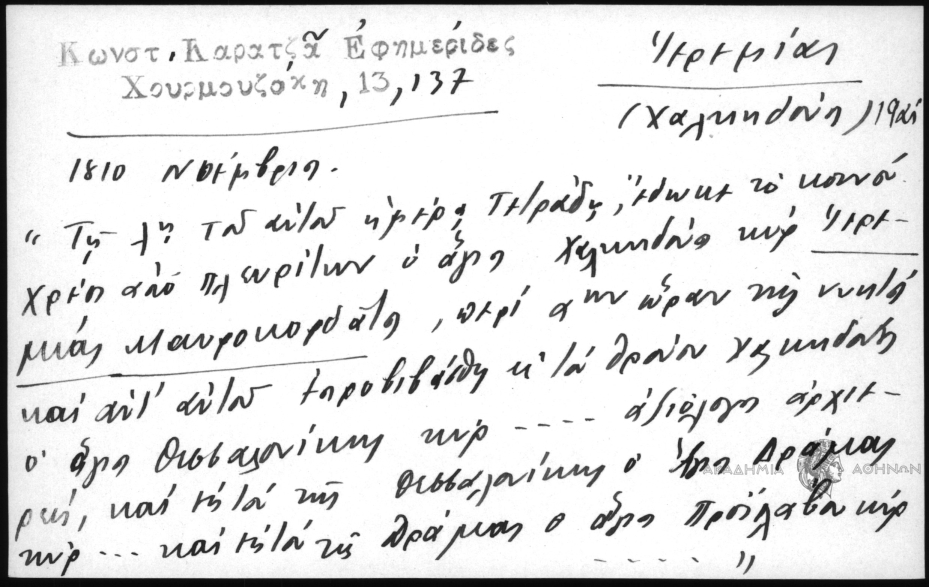 Κωνστ. Καρατζᾶ Ἐφημερίδες
Χουρμουζάκη, 13, 137
Ἱερεμίας
(Χαλκηδόνος)
1810 Νοέμβριος.
" Τῇ λῃ τοῦ αὐτοῦ ἡμέρᾳ Τετράδῃ, ἔδωκε τὸ κοινὸ
χρέος ἀπὸ πλευρίτων ὁ ἅγιος Χαλκηδόνος κύρ Ἱερε-
μίας Μαυροκορδάτος, περὶ αην ὥραν τῆς νυκτός
καὶ ἀντ' αὐτοῦ ἐπροβιβάσθη εἰς τὸ θρόνον Χαλκηδόνος
ὁ ἅγιος Θεσσαλονίκης κύρ ---- ἀξιόλογος ἀρχιε-
ρεύς, καὶ εἰς τὸ τῆς Θεσσαλονίκης ὁ ἅγιος Δράμας
κύρ --- καὶ εἰς τὸ τῆς Δράμας ὁ ἅγιος Προϊλάβου κύρ
----- "
ΑΚΑΔΗΜΙΑ ΑΘΗΝΩΝ